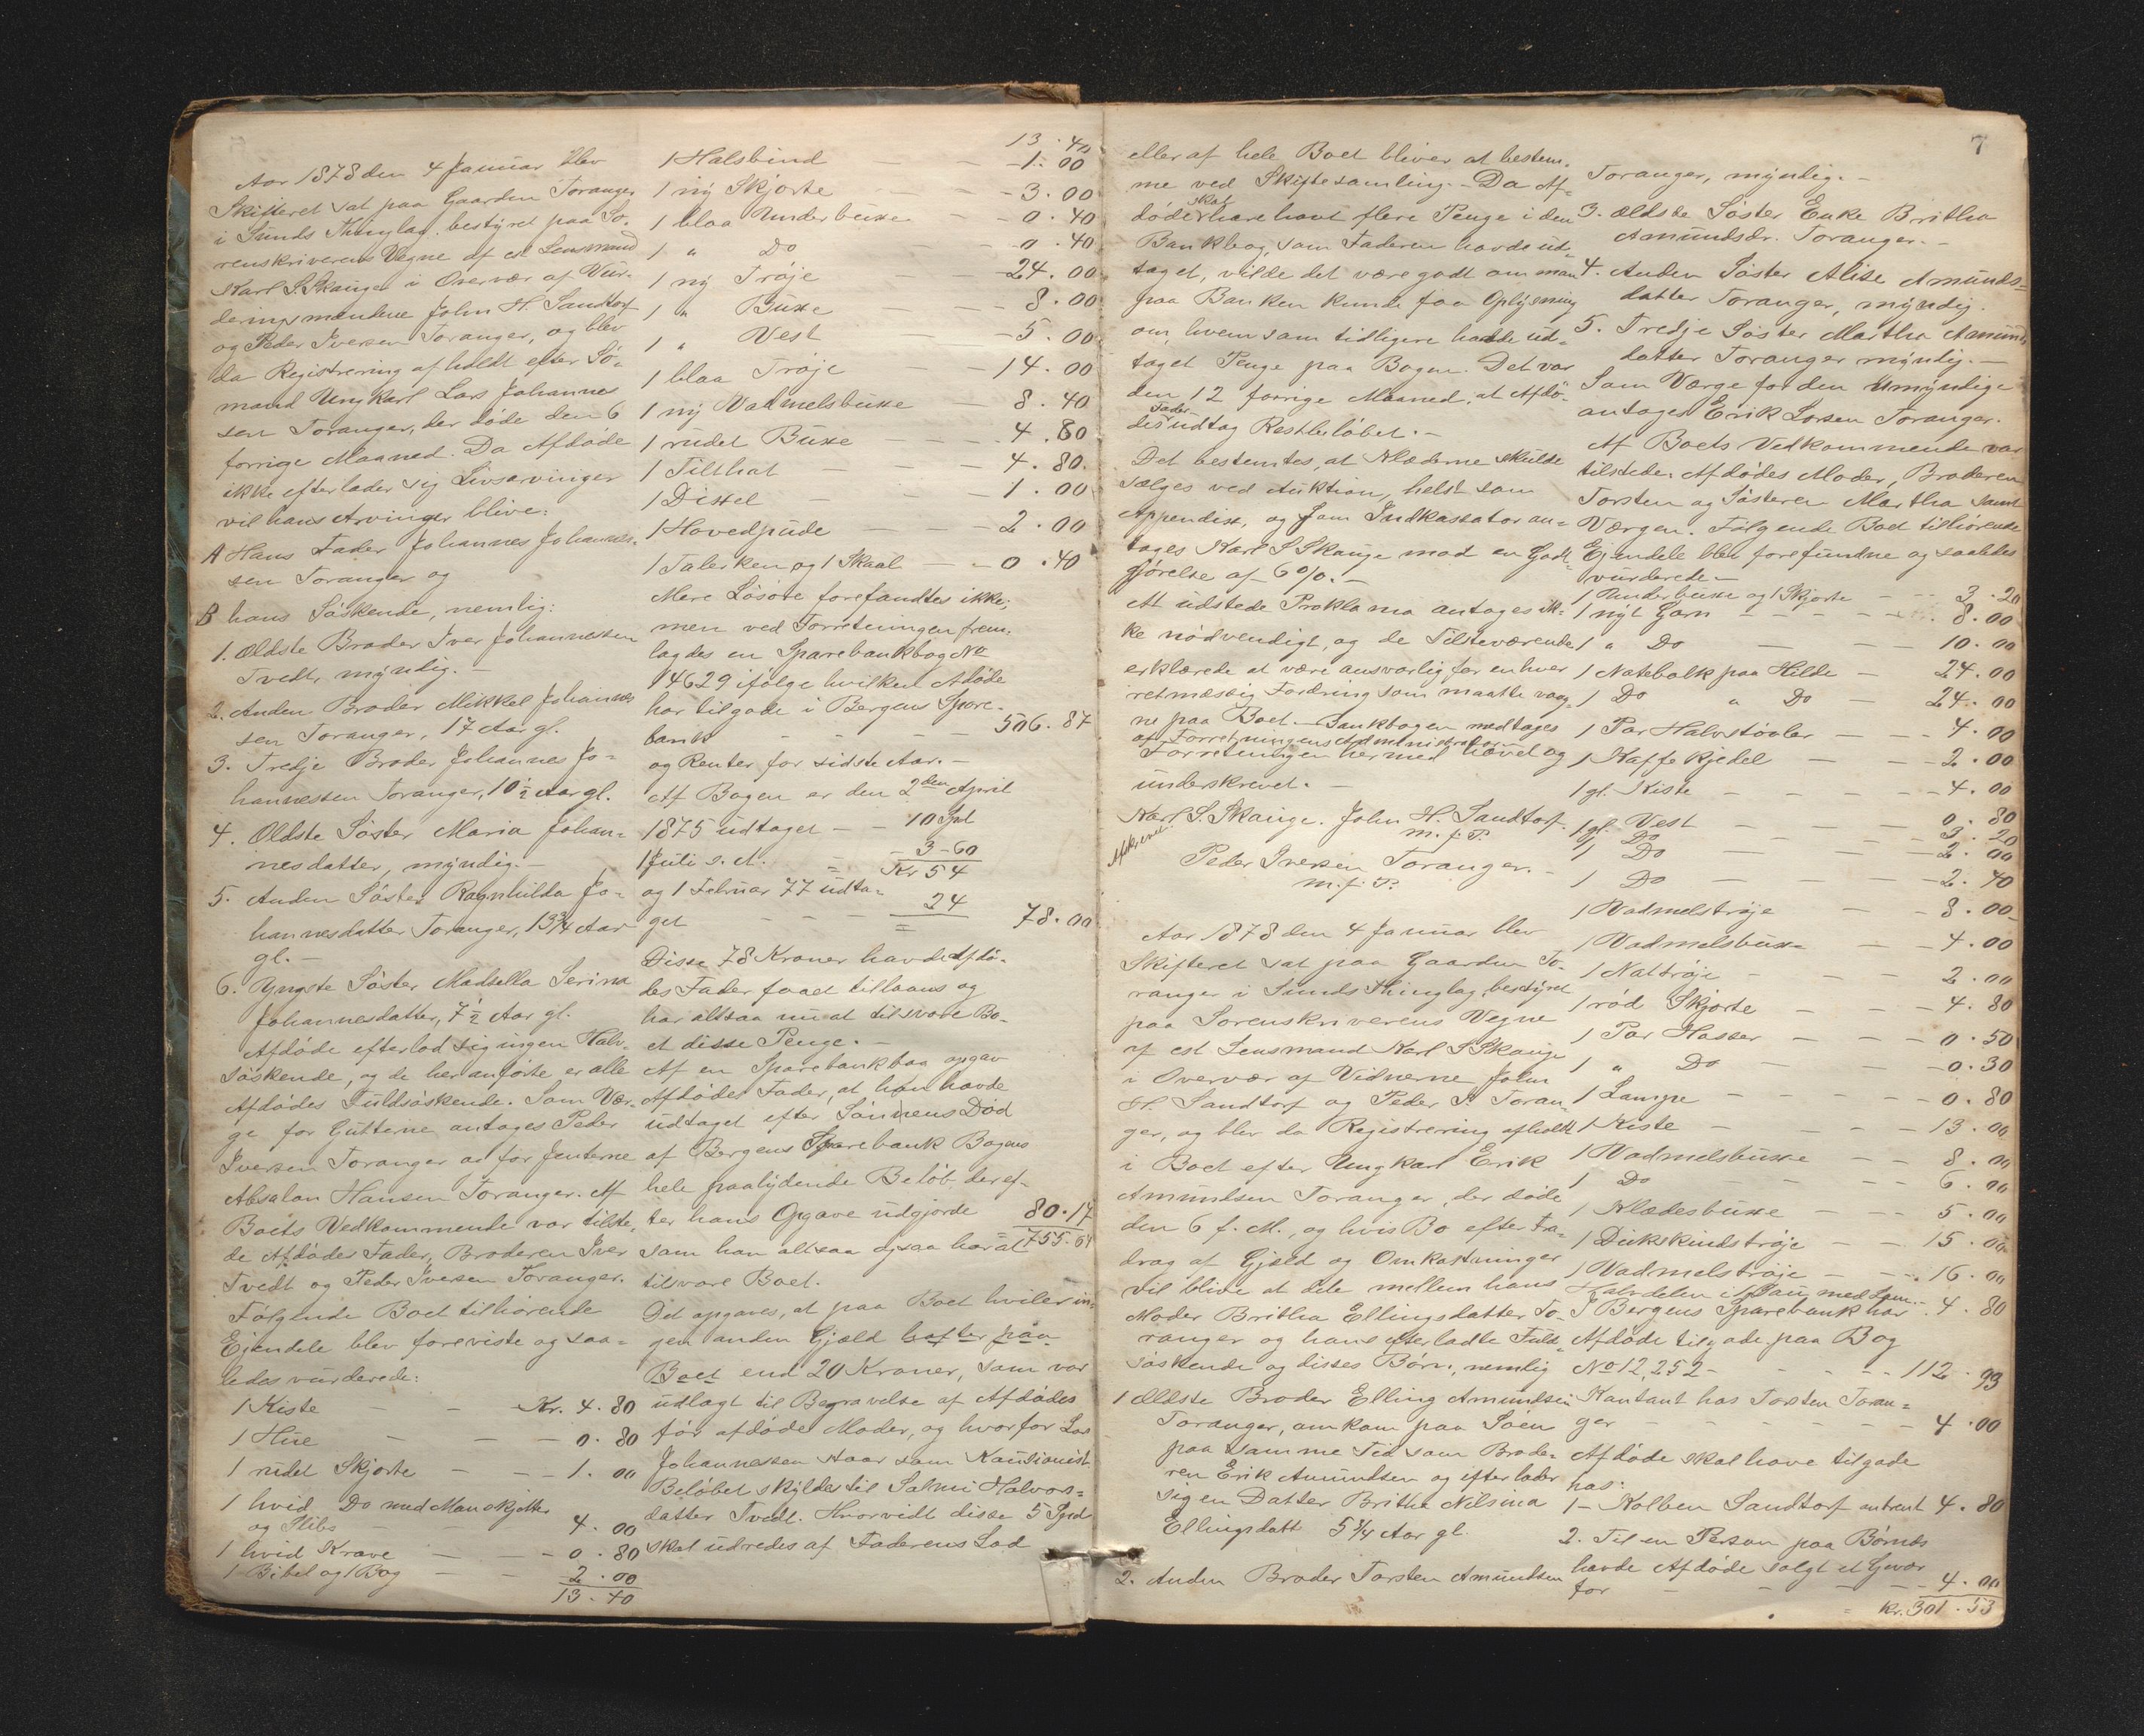 Aar 1878 den 4 Januar blev
Skifteret sat paa Gaarden Toranger
i Sunds Thinglag, bestyret paa So-
renskriverens Vegne af cst Lensmand
Karl S. Skauge i Overvær af Vur-
deringsmændene John H. Sandtorf
og Peder Iversen Toranger, og blev
da Registrering afholdt efter Sø-
mand Ungkarl Lars Johannes
sen Toranger, der døde den 6
forrige Maaned. Da Afdøde
ikke efterlader sig Livsarvinger
vil hans Arvinger blive:
A Hans Fader Johannes Johannes-
sen Toranger og
B hans Søskende, nemlig:
1. Ældste Broder Iver Johannessen
Tvedt, myndig. -
2. Anden Broder Mikkel Johannes
sen Toranger, 17 Aar gl.
3. Tredje Broder Johannes Jo-
hannessen Toranger, 10 1/2 Aar gl.
4. Ældste Søster Maria Johan-
nesdatter, myndig. -
5. Anden Søster Ragnhilda Jo-
hannesdatter Toranger, 13 3/4 Aar
gl. -
6. Yngste Søster Madsella Serina
Johannesdatter, 7 1/2 Aar gl.
Afdøde efterlod sig ingen Halv-
søskende, og de her anførte er alle
Afdødes Fuldsøskende. Som Vær-
ge for Gutterne antages Peder
Iversen Toranger og for Jenterne
Absalon Hansen Toranger. Af
Boets Vedkommende var tilste-
de Afdødes Fader, Broderen Iver
Tvedt og Peder Iversen Toranger.
Følgende Boet tilhørende
Ejendele blev foreviste og saa-
ledes vurderede:
1 Kiste - - Kr. 4.80
1 Hue - - 0.80
1 rudet Skjorte - - 1.00
1 hvid Do med Manskjetter
og Slibs - - 4.00
1 hvid Krave - - 0.80
1 Bibel og 1 Bog - 2.00
13.40
13.40
1 Halsbind - - 1.00
1 ny Skjorte - - 3.00
1 blaa Underbuxe - - 0.40
1 " Do - 0.40
1 ny Trøje - 24.00
1 " Buxe - 8.00
1 " Vest - 5.00
1 blaa Trøje - - 14.00
1 ny Vadmelsbuxe - 8.40
1 rudet Buxe - - 4.80
1 Filthat - 4.80
1 Dissel - - 1.00
1 Hovedpude - - 2.00
1 Talerken og 1 Skaal - - 0.40
Mere Løsøre forefandtes ikke;
men ved Forretningen frem-
lagdes en Sparebankbog No
14629 ifølge hvilken Afdøde
har tilgode i Bergens Spare-
bank - - 506.87
og Renter for sidste Aar. -
Af Bogen er den 2den April
1875 udtaget - - 10 Spd
1 Juli s. A. - - 3-60
= Kr 54
og 1 Februar 77 udta-
get - - 24
= 78.00
Disse 78 Kroner havde Afdø-
des Fader faaet tillaans og
har altsaa nu at tilsvare Bo-
et disse Penge. -
Af en Sparebankbog opgav
Afdødes Fader, at han havde
udtaget efter Sønnens Død
af Bergens Sparebank Bogens
hele paalydende Beløb der ef-
ter hans Opgave udgjorde 80.17
som han altsaa ogsaa har at 755.64
tilsvare Boet.
Det opgaves, at paa Boet hviler in-
gen anden Gjæld hefter paa
Boet end 20 Kroner, som var
udlagt til Begravelse af Afdødes
før afdøde Moder, og hvorfor Lars
Johannessen staar som Kautionist.
Beløbet skyldes til Salmi Halvors-
datter Tvedt. Hvorvidt disse 5 Spd
skal udredes af Faderens Lod
7
eller af hele Boet bliver at bestem-
me ved Skiftesamling. - Da Af-
døde skal have havt flere Penge i den
Bankbog, som Faderen havde ud-
taget, vilde det være godt om man
paa Banken kunde faa Oplysning
om, hvem som tidligere havde ud-
taget Penge paa Bogen. Det var
den 12 forrige Maaned, at Afdø-
des Fader udtog Restbeløbet. -
Det bestemtes, at Klæderne skulde
sælges ved Auktion, helst som
Appendix, og som Indkassator an-
tages Karl S Skauge mod en Godt-
gjørelse af 6 %. -
At udstede Proklama antages ik-
ke nødvendigt, og de Tilstedeværende
erklærede at være ansvarlig for enhver
retmæssig Fordring som maatte være
paa Boet. - Bankbogen medtages
af Forretningens Administrator.
Forretningen hermed hævet og
underskrevet. -
Karl S. Skauge. John H. Sandtorf
m. f. P.
Afskrevet
Peder Iversen Toranger. -
m. f. P.
Aar 1878 den 4 Januar blev
Skifteret sat paa Gaarden To-
ranger i Sunds Thinglag, bestyret
paa Sorenskriverens Vegne
af cst. Lensmand Karl S Skauge
i Overvær af Vidnerne John
H. Sandtorf og Peder I. Toran-
ger, og blev da Registrering afholdt
i Boet efter Ungkarl Erik
Amundsen Toranger, der døde
den 6 f. M., og hvis Bo efter Fra-
drag af Gjæld og Omkostninger
vil blive at dele mellem hans
Moder Britha Ellingsdatter To-
ranger og hans efterladte Fuld-
søskende og disses Børn, nemlig
1 Ældste Broder Elling Amundsen
Toranger, omkom paa Søen
paa samme Tid som Brode-
ren Erik Amundsen og efterlader
sig en Datter Britha Nilsina
Ellingsdatt 5 3/4 Aar gl.
2. Anden Broder Torsten Amundsen
Toranger, myndig. -
3. ældste Søster Enke Britha
Amundsdr. Toranger. -
4. Anden Søster Alise Amunds-
datter Toranger, myndig.
5. Tredje Søster Martha Amunds
datter Toranger myndig. -
Som Værge for den Umyndige
antages Erik Larsen Toranger.
Af Boets Vedkommende var
tilstede: Afdødes Moder, Broderen
Torsten og Søsteren Martha samt
Værgen. Følgende Boet tilhørende
Ejendele blev forefundne og saaledes
vurderede -
1 Underbuxe og 1 Skjorte - - 3.20
1 nyt Garn - - 8.00
1 " Do - - 10.00
1 Notebolk paa Hilde - 24.00
1 Do " Do - 24.00
1 Par Halvstøvler - - 4.00
1 Kaffekjedel - - 2.00
1 gl. Kiste - - 4.00
1 gl. Vest - - 0.80
1 Do - 3.20
1 Do - - 2.00
1 Do - - 2.40
1 Vadmelstrøje - - 8.00
1 Vadmelsbuxe - - 4.00
1 Nattrøje - - 2.00
1 rød Skjorte - - 4.80
1 Par Hoser - - 0.50
1 " Do - - 0.30
1 Lampe - - 0.80
1 Kiste - - 13.00
1 Vadmelsbuxe - - 8.00
1 Do - - 6.00
1 Klædesbuxe - - 5.00
1 Dukskindstrøje - - 15.00
1 Vadmelstrøje - - 16.00
Halvdelen i 1 Sau med Lam - 4.80
I Bergens Sparebank har
Afdøde tilgode paa Bog
No 12,252 - - - 112.93
Kontant hos Torsten Toran-
ger - - 4.00
Afdøde skal have tilgode
hos:
1 - Kolben Sandtorf omtrent 4.80
2. Til en Person paa Børnes
havde Afdøde solgt et Gevær
for - - 4.00
Kr. 301.53